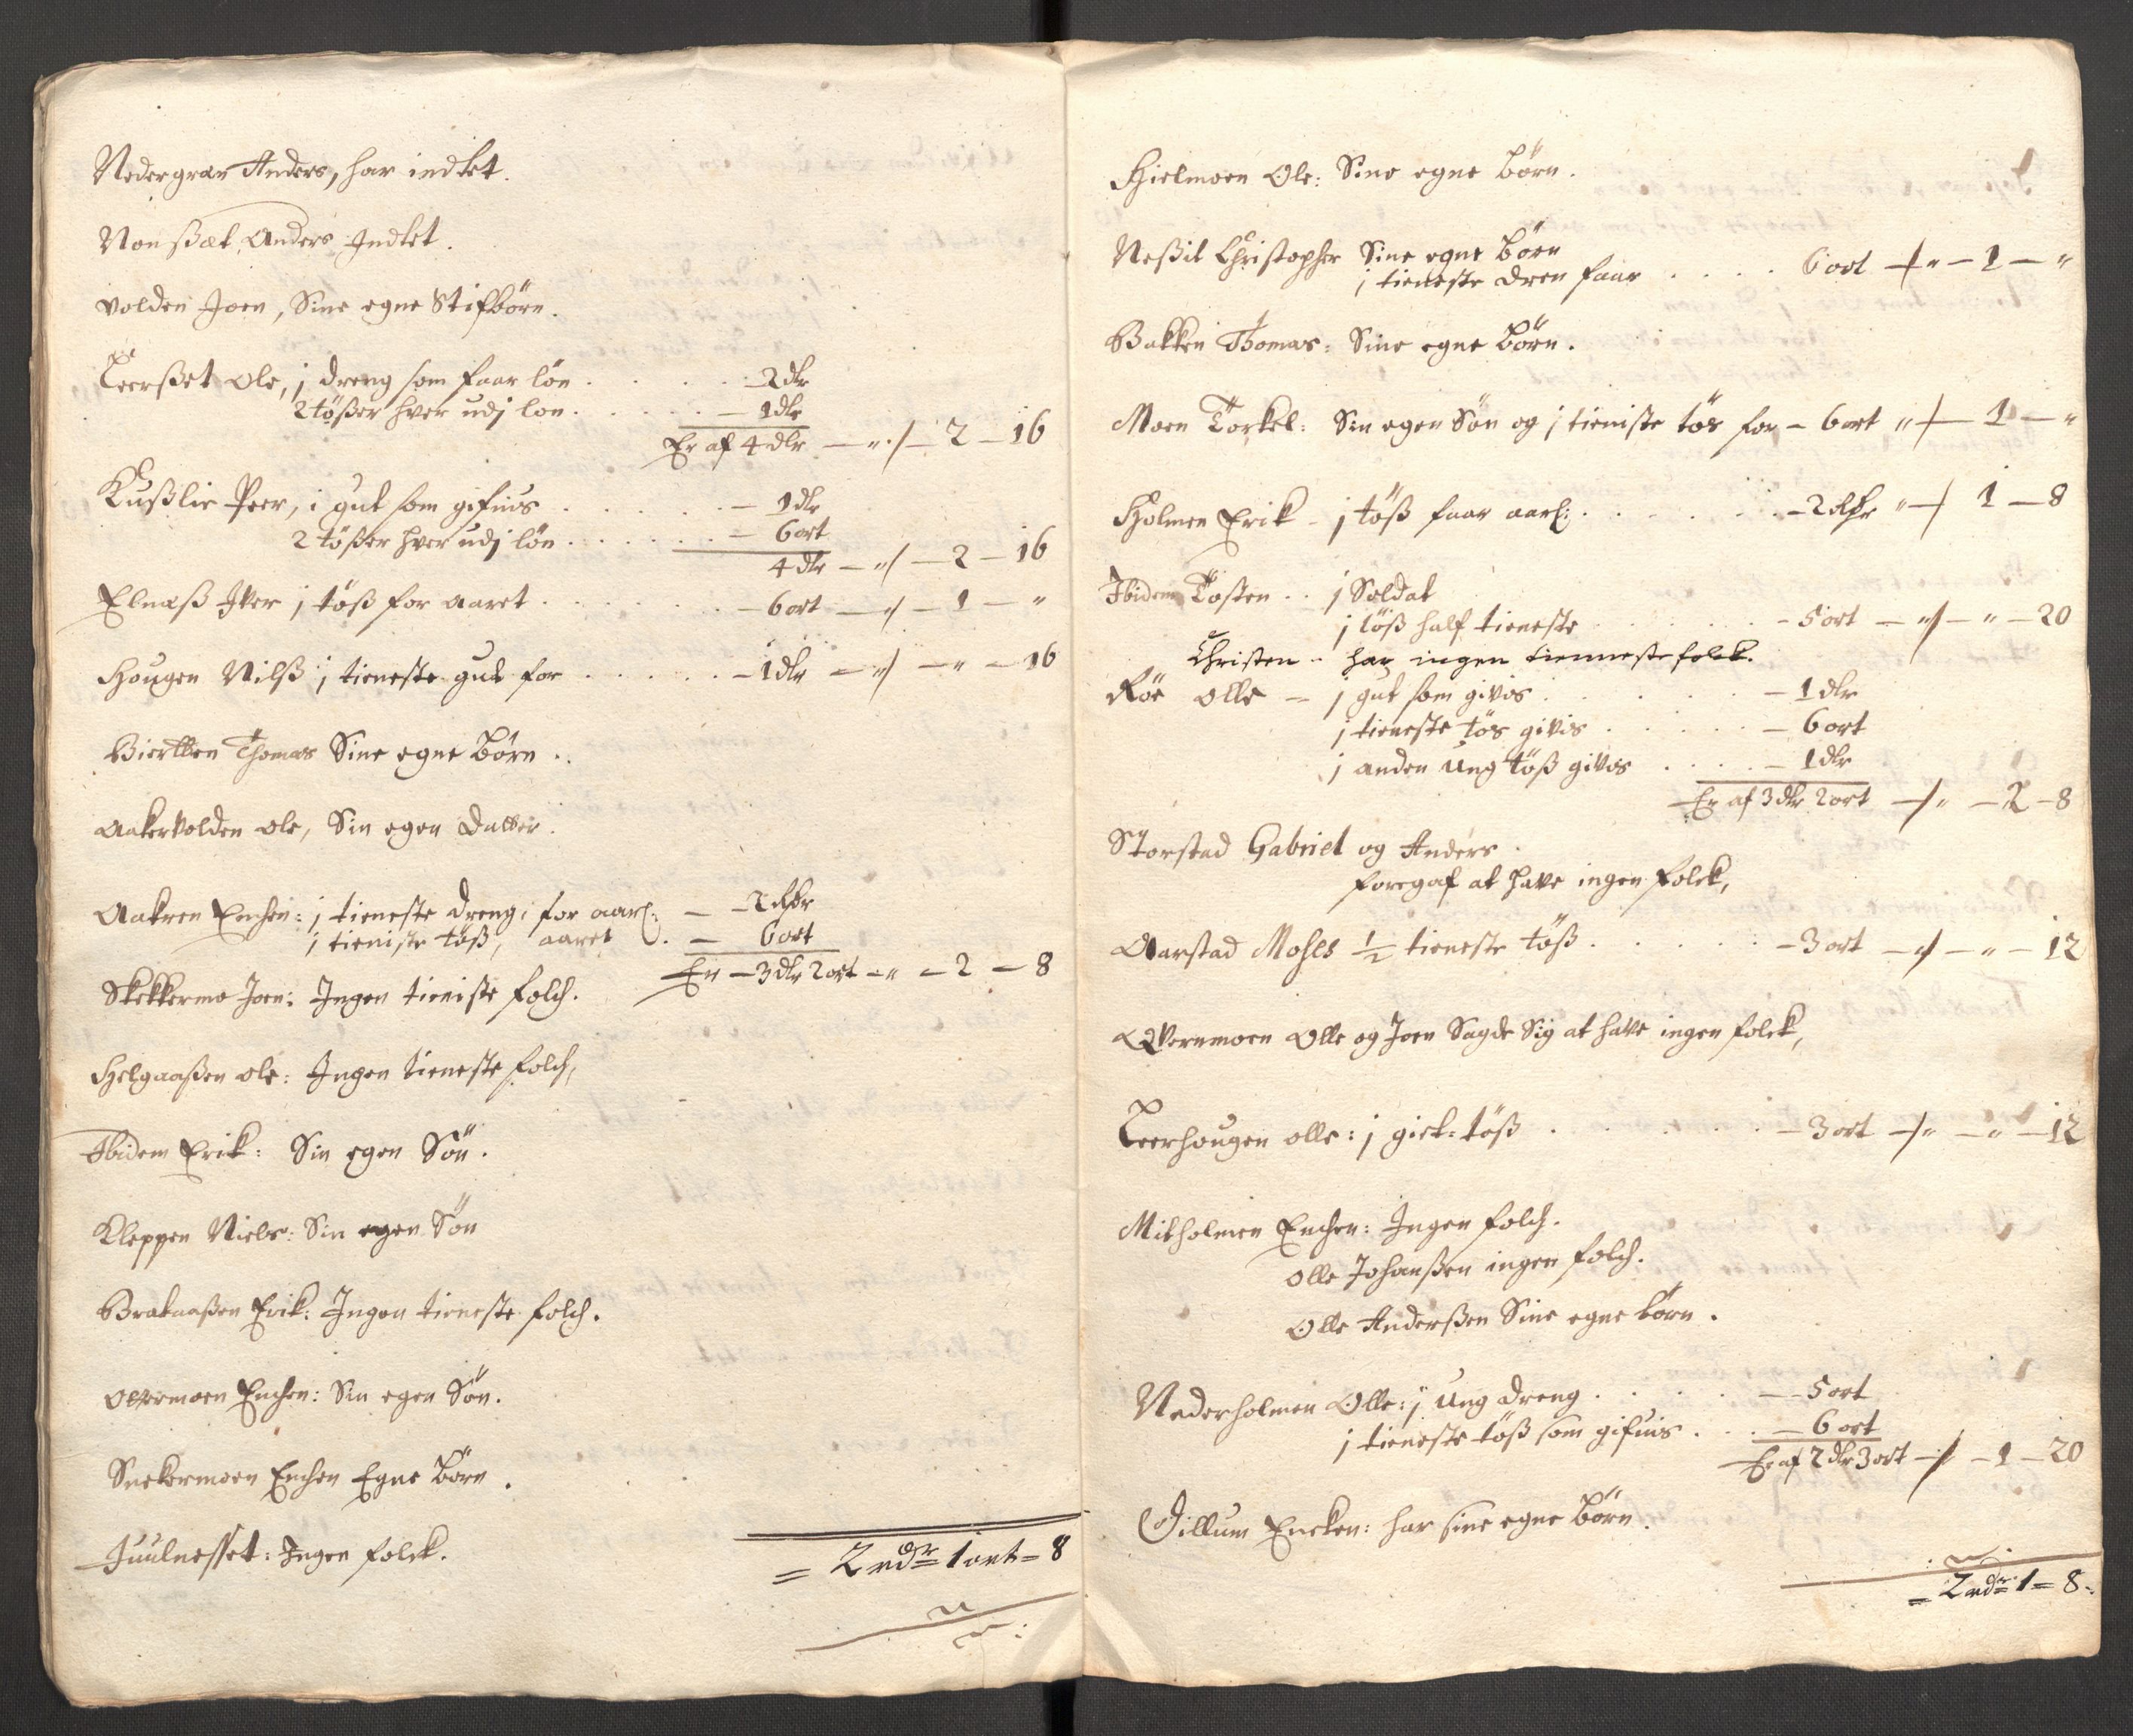 Nedergran Anders, har indtet.
Nonßæt, Anders Indtet.
volden Joen, Sine egne Stifbörn.
Leerßet Ole, j dreng som faar lön . . . . . 2 dlr
2 tößer hver udj lön . . . . . — 1 dlr
Er af 4 dlr — „ ./. — 2 — 16
Kußlie Peer, i gut som gifuis . . . . . — 1 dlr
2 tößer hver udj lön . . . . . — 6 ort
4 dlr — „ / — 2 — 16
Elnæß Iver j töß for aaret . . . . . — 6 ort — „ / — 1 — „
Hougen Nilß j tieneste gut for . . . . . — 1 dlr — „ / — „ — 16
Biertken Thomas Sine egne Börn .
Aakervolden Ole, Sin egen Datter.
Aakren Enchen: j tieneste dreng, for aarl: — 2 dlr
j tieniste töß, aaret . — 6 ort
Er — 3 dlr 2 ort — „ — 2 — 8
Skekkermo Joen: Ingen tieniste folch.
Helgaaßen Ole: Ingen tieneste folch,
Ibidem Erik: Sin egen Sön.
Kleppen Niels: Sin egen Sön
Brataaßen Erik: Ingen tieneste folch.
Overmoen Enchen: Sin egen Sön.
Snekermoen Enchen Egne Börn .
Juulnesset: Ingen folck.
= 2 rdr 1 ort = 8
Hielmoen Ole: Sine egne Börn.
Neßit Christopher Sine egne Börn
j tieneste dren faar . . . . 6 ort — / „ — 1 — „
Bakken Thomas: Sine egne Börn.
Moen Torkel: Sin egen Sön og j tieniste tös for — 6 ort „ / — 1 — „
Holmen Erik — j töß faar aarl: . . . . . — 2 dlr „ — / 1 — 8
Ibidem Tosten . . j Soldat
j töß half tieneste . . . . . — 5 ort — „ / — „ — 20
Christen — har ingen tienneste folck.
Röe Olle — j gut som givis . . . . . — 1 dlr
j tieneste tös givis . . . . . — 6 ort
j anden ung töß givis . . . . — 1 dlr
Er af 3 dlr 2 ort — / „ — 2 — 8
Storstad Gabriel og Anders .
foregaf at have ingen folck,
Aarstad Moses 1/2 tieneste töß . . . . . — 3 ort — „ / — „ — 12
Qvernmoen Olle og Joen Sagde Sig at have ingen folck,
Leerhougen olle: j giet: töß . . . . . — 3 ort — / „ — „ — 12
Mitholmen Enchen: Ingen folch.
Olle Johanßen ingen folch.
Olle Anderßen Sine egne börn .
Nederholmen Olle: j ung dreng . . . . . — 5 ort
j tieneste töß som gifuis . . . — 6 ort
Er af 2 dlr 3 ort — / — 1 — 20
Gillum Encken: har sine egne Börn.
= 2 rdr 1 = 8.